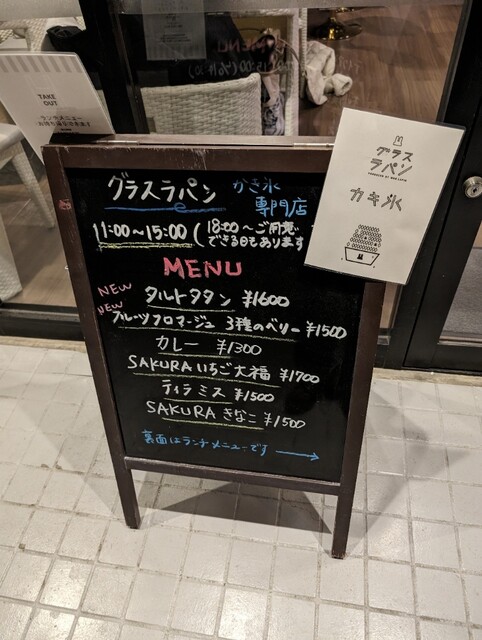 TAKE
OUT
ランチメニュー
MENU
グラス
ラパン
カキ氷
グラスラパン かき氷
専門店
11:00~15:00 (18:00~ご用意
できる日もあります
MENU
NEW タルトタタン ¥1600
NEW フルーツフロマージュ 3種のベリー ¥1500
カレー ¥1300
SAKURAいちご大福 ¥1700
ティラミス ¥1500
SAKURAきなこ ¥1500
裏面はランチメニューです →